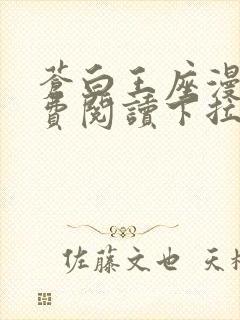 蒼白王座漫
費閱讀下拉
佐藤文也 天